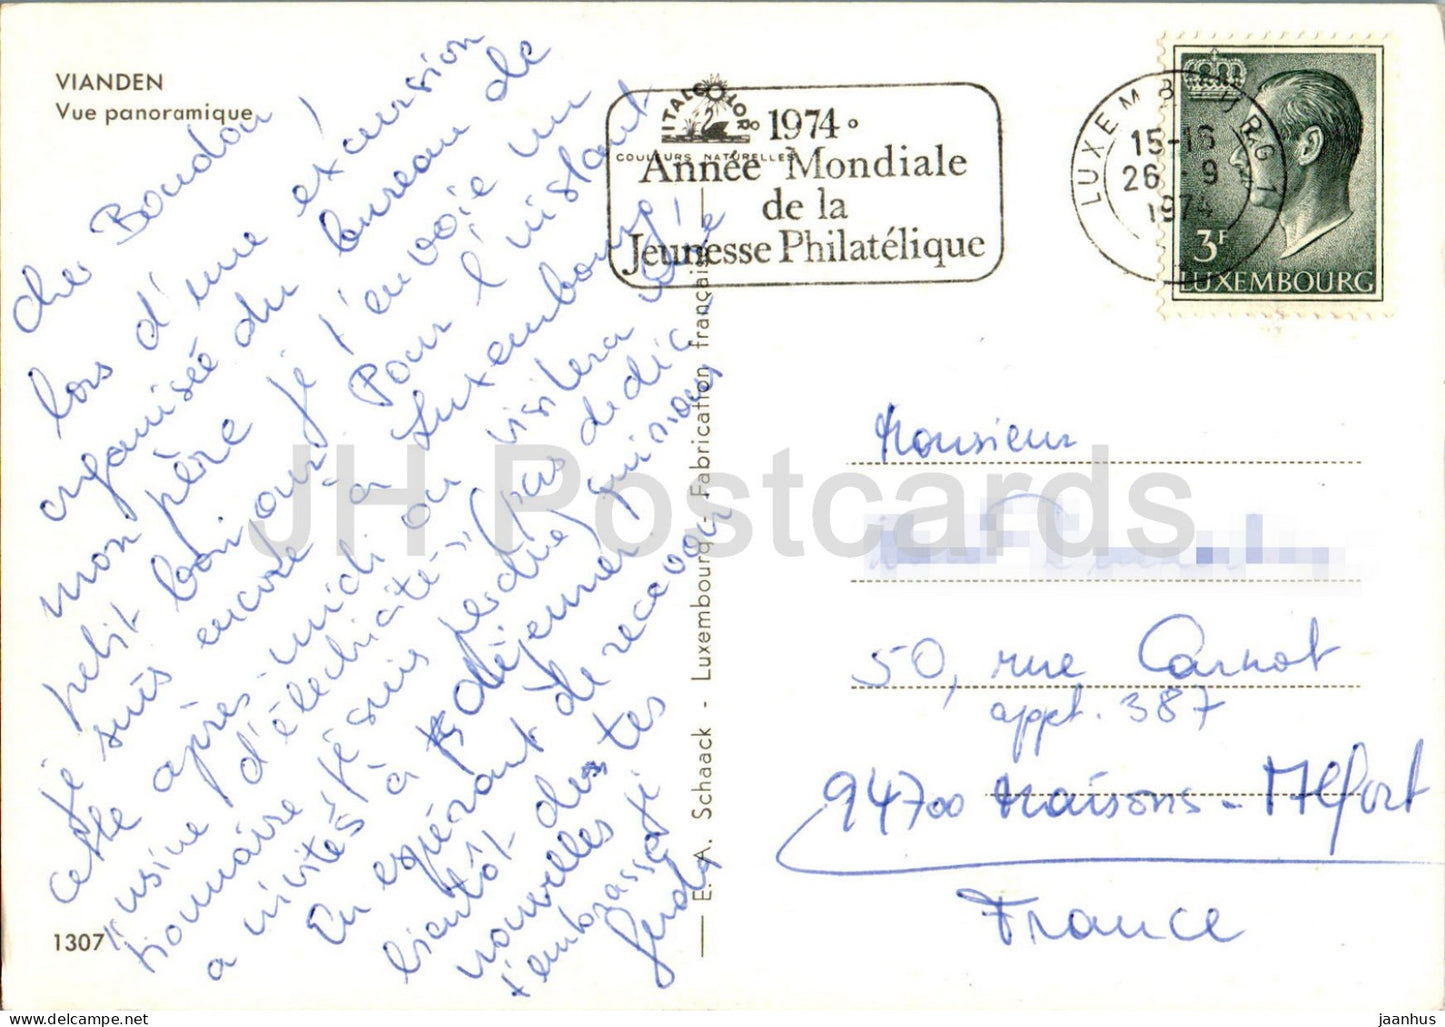 VIANDEN
Vue panoramique
Cher Boudou !
lors d'une excursion
organisée du bureau de
mon père je t'envoie un
petit bonjour. Pour l'instant
je suis encore à Luxembourg.
Cette après-midi on visitera
l'usine d'électricité
a invités à déjeuner
En espérant de recevoir
bientôt des tes
nouvelles je
t'embrasse
1307
E. A. Schaack - Luxembourg - Fabrication française
ITALCOLOR
COULEURS NATURELLES
1974
Année Mondiale
de la
Jeunesse Philatélique
LUXEMBOURG 1
15-16
26 - 9
1974
3F
LUXEMBOURG
Monsieur
50, rue Carnot
appt. 387
94700 Maisons-Alfort
France
JH Postcards
jaanhus | ©delcampe.net